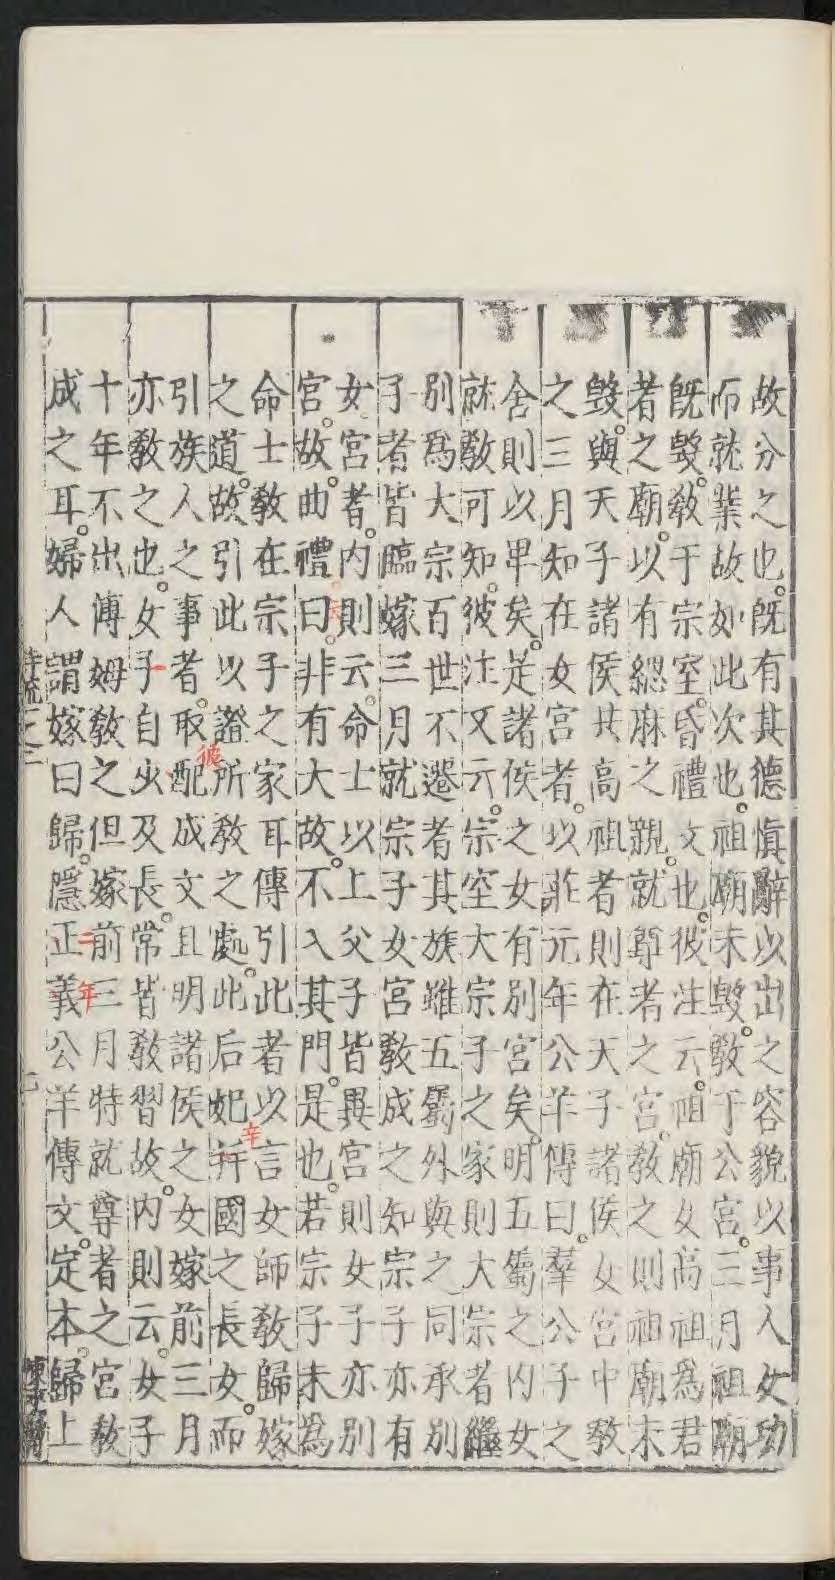 故分之也既有其德慎辭以出之容貌以事人女功
而就業故如此次也祖廟未毀教于公宮三月祖廟
既毀教于宗室昏禮文也彼注云祖廟女高祖爲君
者之廟以有緦麻之親就尊者之宮教之則祖廟未
毀與天子諸侯共高祖者則在天子諸侯女宮中教
之三月知在女宮者以莊元年公羊傳曰羣公子之
舍則以卑矣是諸侯之女有別宮矣明五屬之內女
就教可知彼注又云宗室大宗子之家則大宗者繼
別爲大宗百世不遷者其族雖五屬外與之同承別
子者皆臨嫁三月就宗子女宮教成之知宗子亦有
女宮者內則云命士以上父子皆異宮則女子亦別
宮故曲禮曰非有大故不入其門是也若宗子未爲
命士教在宗子之家耳傳引此者以言女師教歸嫁
之道故引此以證所教之處此后妃莘國之長女而
引族人之事者取彼配成文且明諸侯之女嫁前三月
亦教之也女子自少及長常皆教習故內則云女子
十年不出傅姆教之但嫁前三月特就尊者之宮教
成之耳婦人謂嫁曰歸隱二年正義公羊傳文定本歸上
詩疏一之二